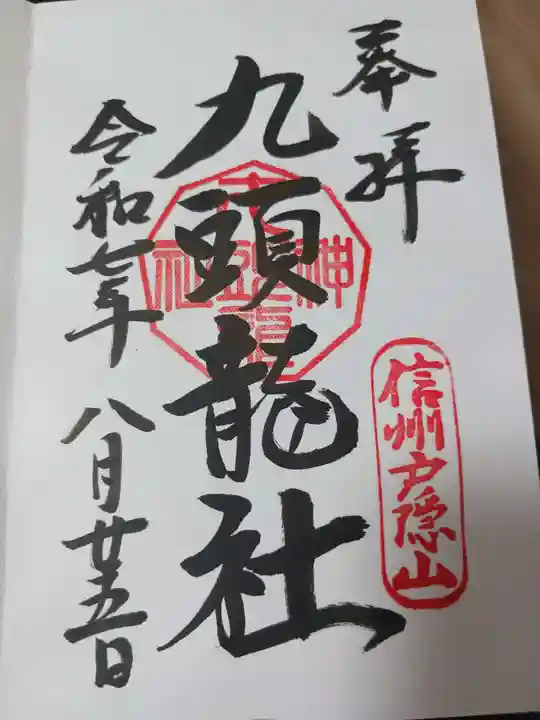 奉拝
信州戸隠山
九頭龍社
令和七年八月廿五日